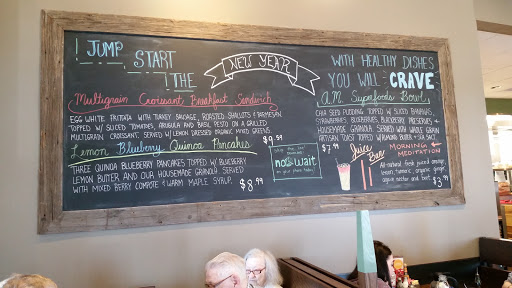 JUMP START
THE
NEW YEAR
WITH HEALTHY DISHES
YOU WILL CRAVE
Multigrain Croissant Breakfast Sandwich
EGG WHITE FRITTATA WITH TURKEY SAUSAGE, ROASTED SHALLOTS & PARMESAN
TOPPED W/ SLICED TOMATOES, ARUGULA AND BASIL PESTO ON A GRILLED
MULTIGRAIN CROISSANT. SERVED W/ LEMON DRESSED ORGANIC MIXED GREENS.
$9.99
Lemon Blueberry Quinoa Pancakes
THREE QUINOA BLUEBERRY PANCAKES TOPPED W/ BLUEBERRY
LEMON BUTTER AND OUR HOUSEMADE GRANOLA. SERVED
WITH MIXED BERRY COMPOTE & WARM MAPLE SYRUP.
$8.99
nowait
A.M. Superfoods Bowl
CHIA SEED PUDDING TOPPED W/ SLICED BANANAS,
STRAWBERRIES, BLUEBERRIES, BLACKBERRY PRESERVES &
HOUSEMADE GRANOLA. SERVED WITH WHOLE GRAIN
ARTISAN TOAST TOPPED W/ ALMOND BUTTER & SEA SALT.
$7.99
Juice
Bar
MORNING
MEDITATION
All-natural fresh juiced orange,
lemon, turmeric, organic ginger,
agave nectar and beet.
$3.99